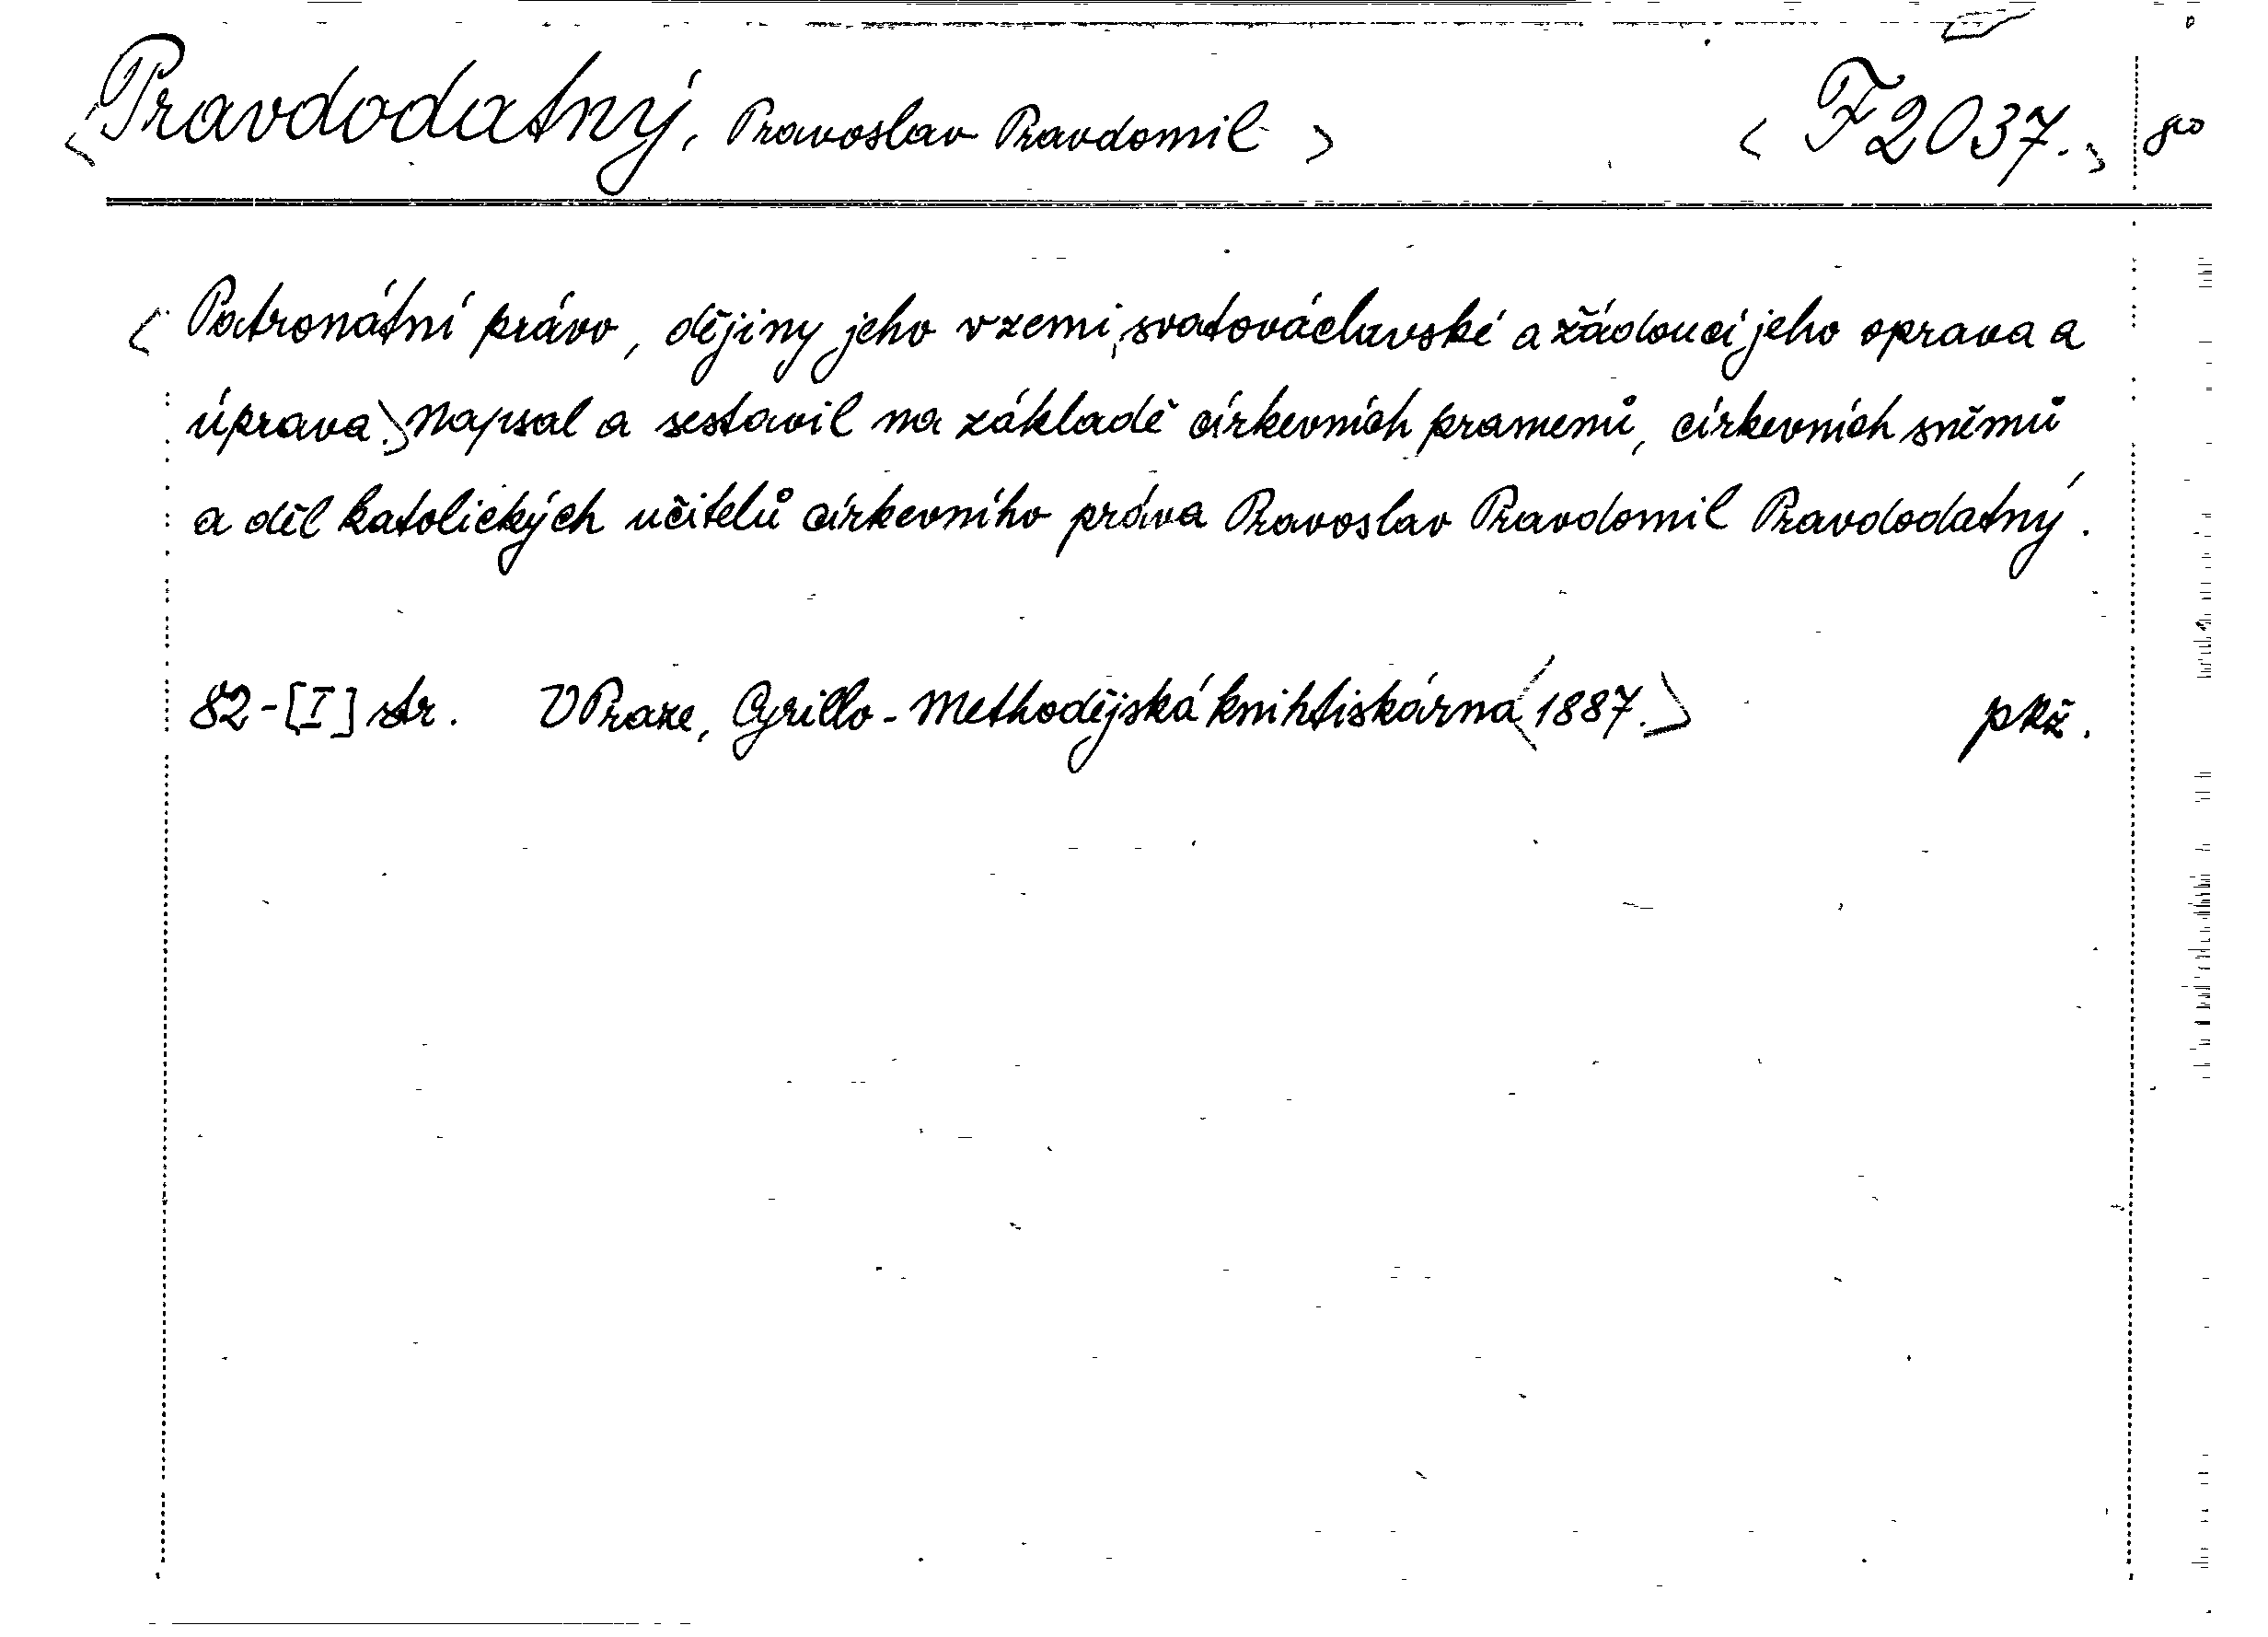 <Pravdodatný, Pravoslav Pravdomil> <F 2037.> 8°
<Patronátní právo, dějiny jeho v zemi svatováclavské a žádoucí jeho oprava a
úprava.> Napsal a sestavil na základě církevních pramenů, církevních sněmů
a děl katolických učitelů církevního práva Pravoslav Pravdomil Pravdodatný.
82-[I] str. V Praze, Cyrillo-Methodějská knihtiskárna <1887.> pkž.